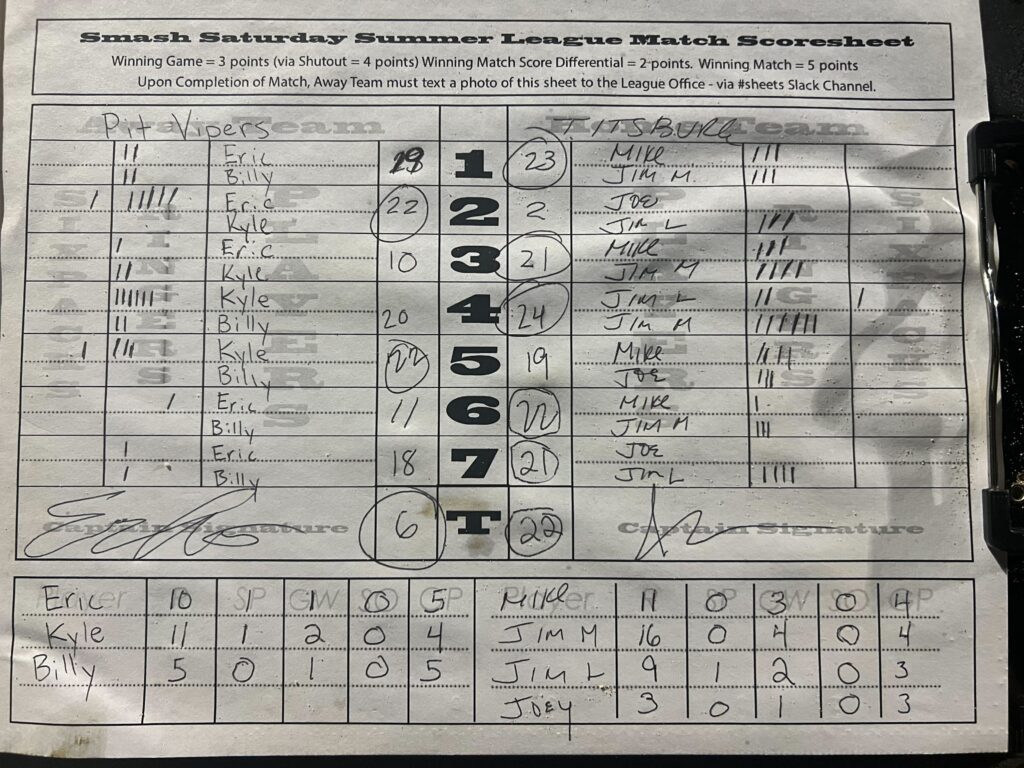 Smash Saturday Summer League Match Scoresheet
Winning Game = 3 points (via Shutout = 4 points) Winning Match Score Differential = 2 points. Winning Match = 5 points
Upon Completion of Match, Away Team must text a photo of this sheet to the League Office - via #sheets Slack Channel.
Away Team Home Team
Pit Vipers
Eric 1 23 Mike
Billy Jim M
Eric 22 2 2 Joe
Kyle Jim L
Eric 10 3 21 Mike
Kyle Jim M
Kyle 20 4 24 Jim L
Billy Jim M
Kyle 22 5 19 Mike
Billy Joe
Eric 11 6 22 Mike
Billy Jim M
Eric 18 7 21 Joe
Billy Jim L
6 T 22
Captain Signature Captain Signature
Player SP GW SO GP Player SP GW SO GP
Eric 10 1 1 0 5 Mike 11 0 3 0 4
Kyle 11 1 2 0 4 Jim M 16 0 4 0 4
Billy 5 0 1 0 5 Jim L 9 1 2 0 3
Joey 3 0 1 0 3